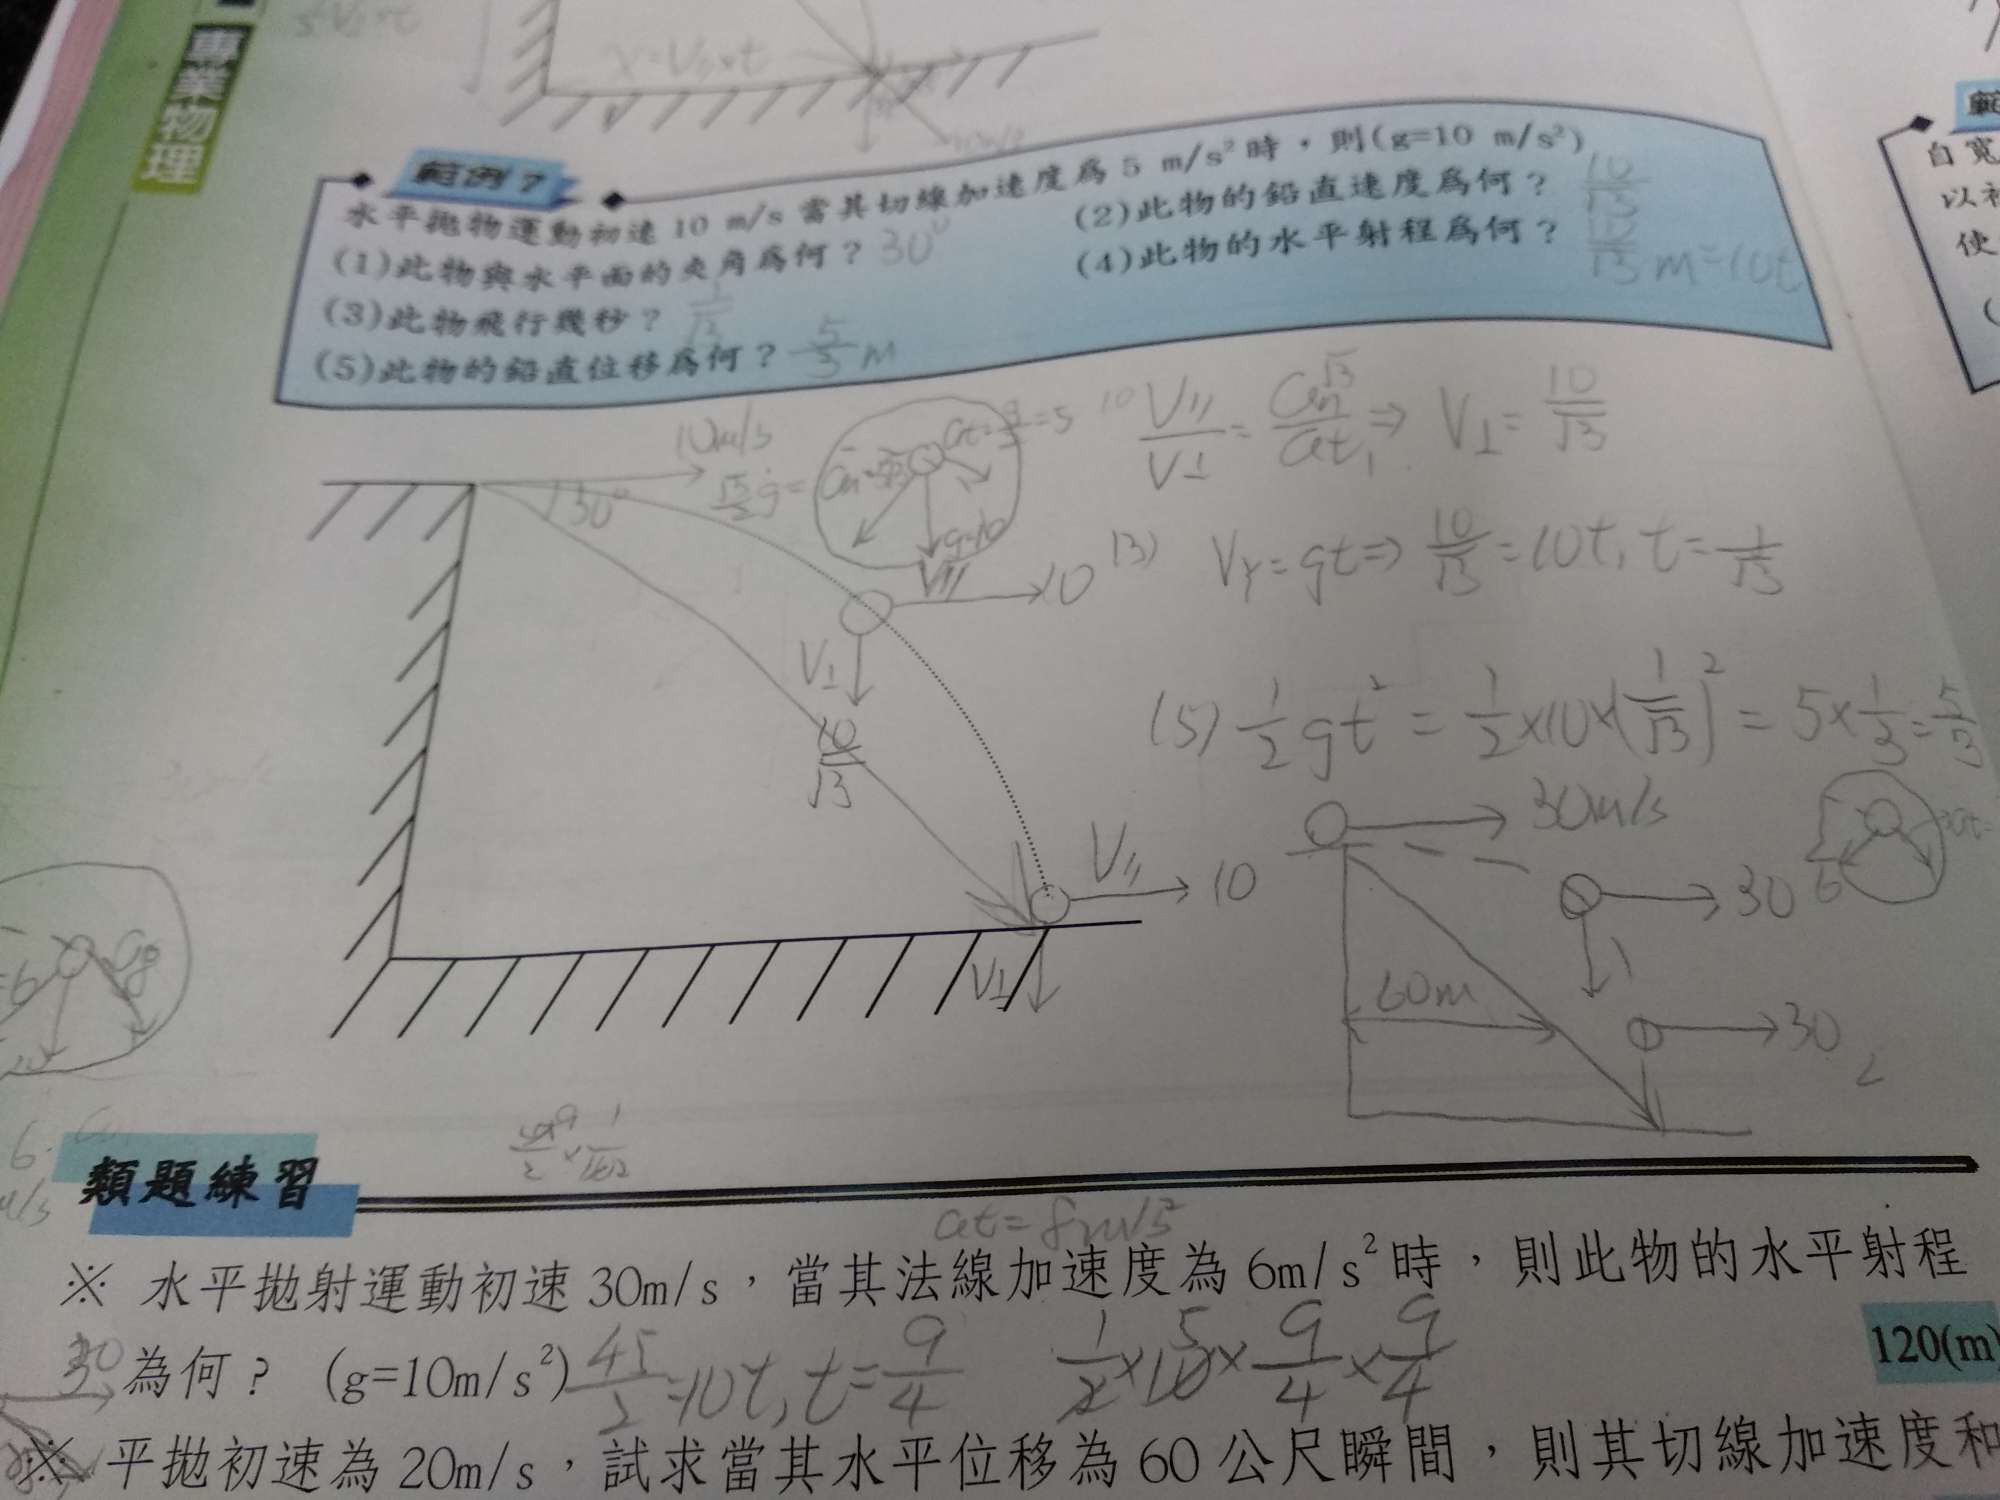 專業物理
x=V∥×t
範例 7
水平拋物運動初速 10 m/s 當其切線加速度為 5 m/s² 時，則(g=10 m/s²)
(1)此物與水平面的夾角為何？ 30° (2)此物的鉛直速度為何？ 10/√3
(3)此物飛行幾秒？ 1/√3 (4)此物的水平射程為何？ 10/√3 m=10t
(5)此物的鉛直位移為何？ 5/3 m
10m/s
30°
√3/2 g=
at=g/2=5
g=10
10 V∥/V⊥=an √3/at 1⇒ V⊥=10/√3
V∥
10
V⊥
10/√3
(3) Vy=gt⇒ 10/√3=10t, t=1/√3
(5) 1/2 gt²=1/2×10×(1/√3)²=5×1/3=5/3
V∥
10
V⊥
30m/s
30
6
60m
30
類題練習
at=8m/s²
※ 水平拋射運動初速 30m/s，當其法線加速度為 6m/s² 時，則此物的水平射程
30
為何？ (g=10m/s²) 45/2=10t, t=9/4 1/2×10×9/4×9/4
5
120(m)
※ 平拋初速為 20m/s，試求當其水平位移為 60 公尺瞬間，則其切線加速度和
自寬
使